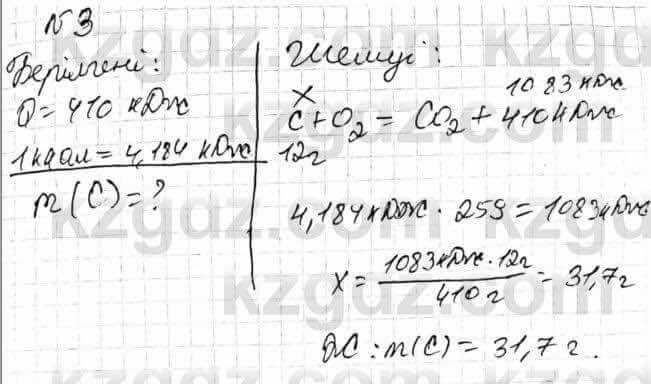 №3
Берілгені:
Q = 410 кДж
1 ккал = 4,184 кДж
m(C) = ?
Шешуі:
x 1083 кДж
C + O₂ = CO₂ + 410 кДж
12г
4,184 кДж · 259 = 1083 кДж
x = 1083 кДж · 12г / 410 г = 31,7 г
ЖС: m(C) = 31,7 г.
kzgdz.com